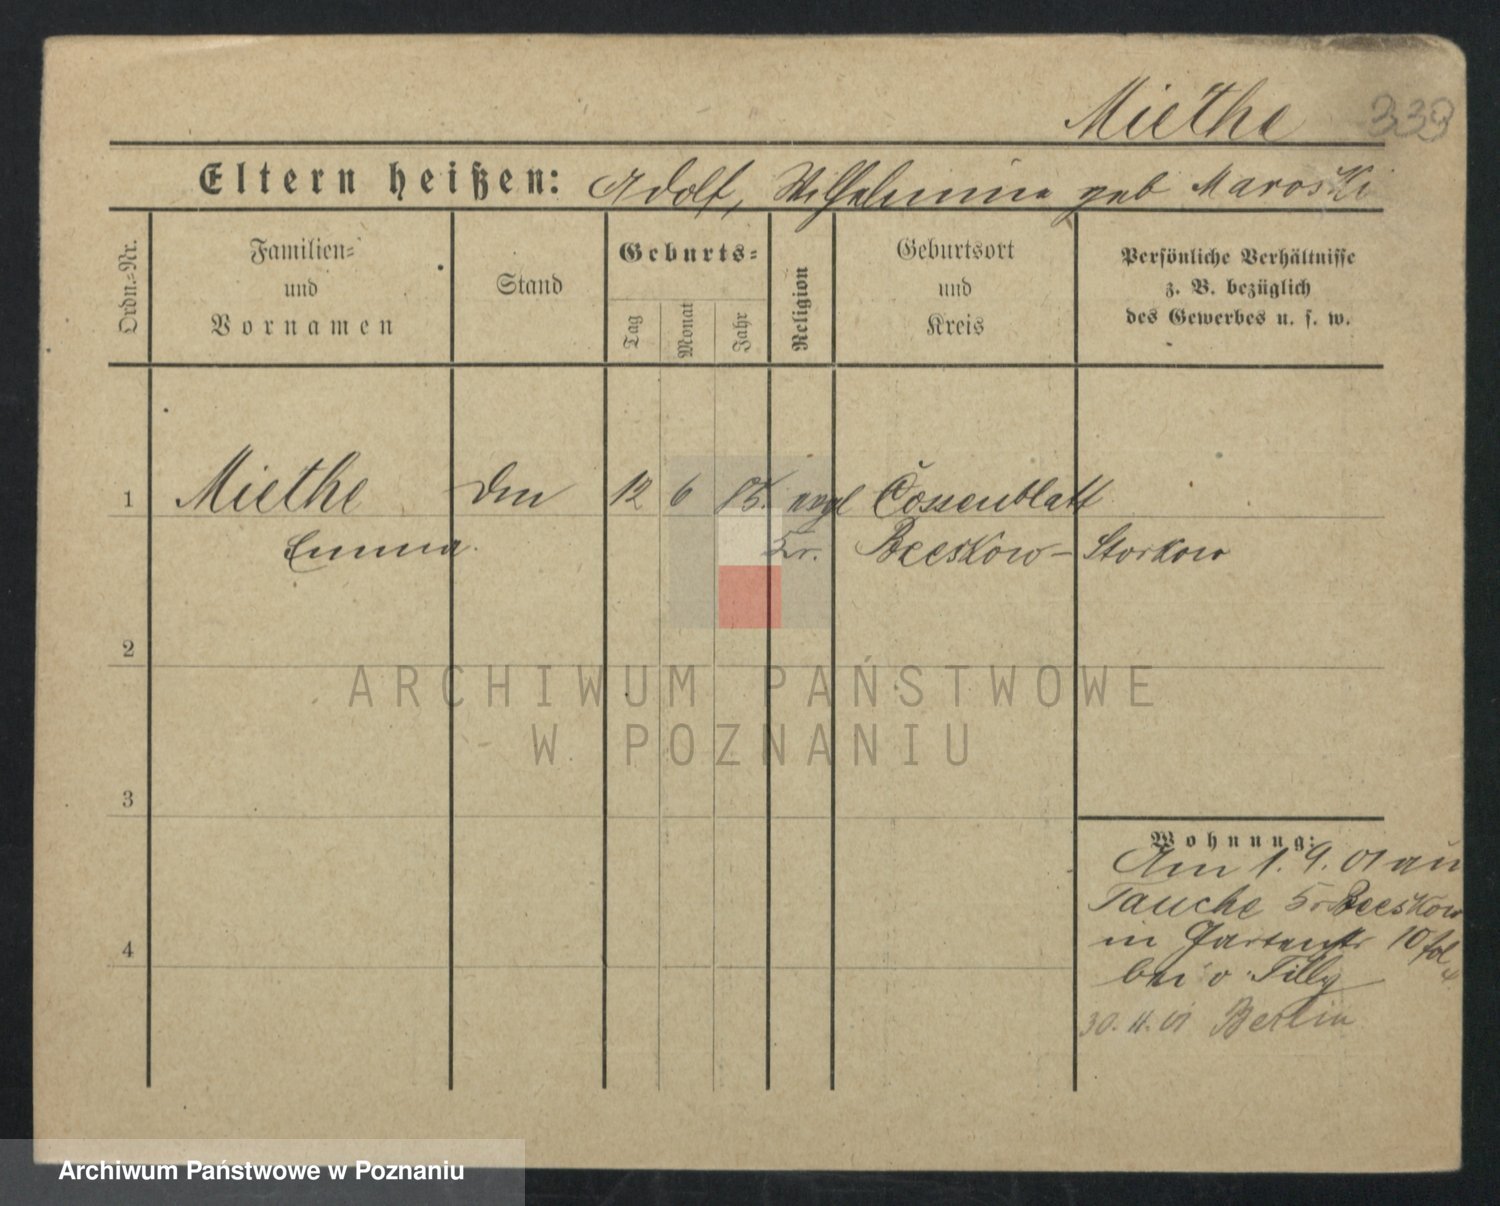 Miethe 339
Eltern heißen: Adolf, Wilhelmine geb Maroski
Ordn.=Nr.
Familien=
und
Vornamen
Stand
Geburts=
Tag
Monat
Jahr
Religion
Geburtsort
und
Kreis
Persönliche Verhältnisse
z. B. bezüglich
des Gewerbes u. s. w.
1 Miethe 12 6 evgl Cossenblatt
Emma Kr. Beeskow - Storkow
2
3
4
ARCHIWUM PAŃSTWOWE
W POZNANIU
Wohnung:
Am 1. 9. 01 aus
Tauche Kr Beeskow
in Gartenstr 10
bei v Tilly
30. 11. 01 Berlin
Archiwum Państwowe w Poznaniu